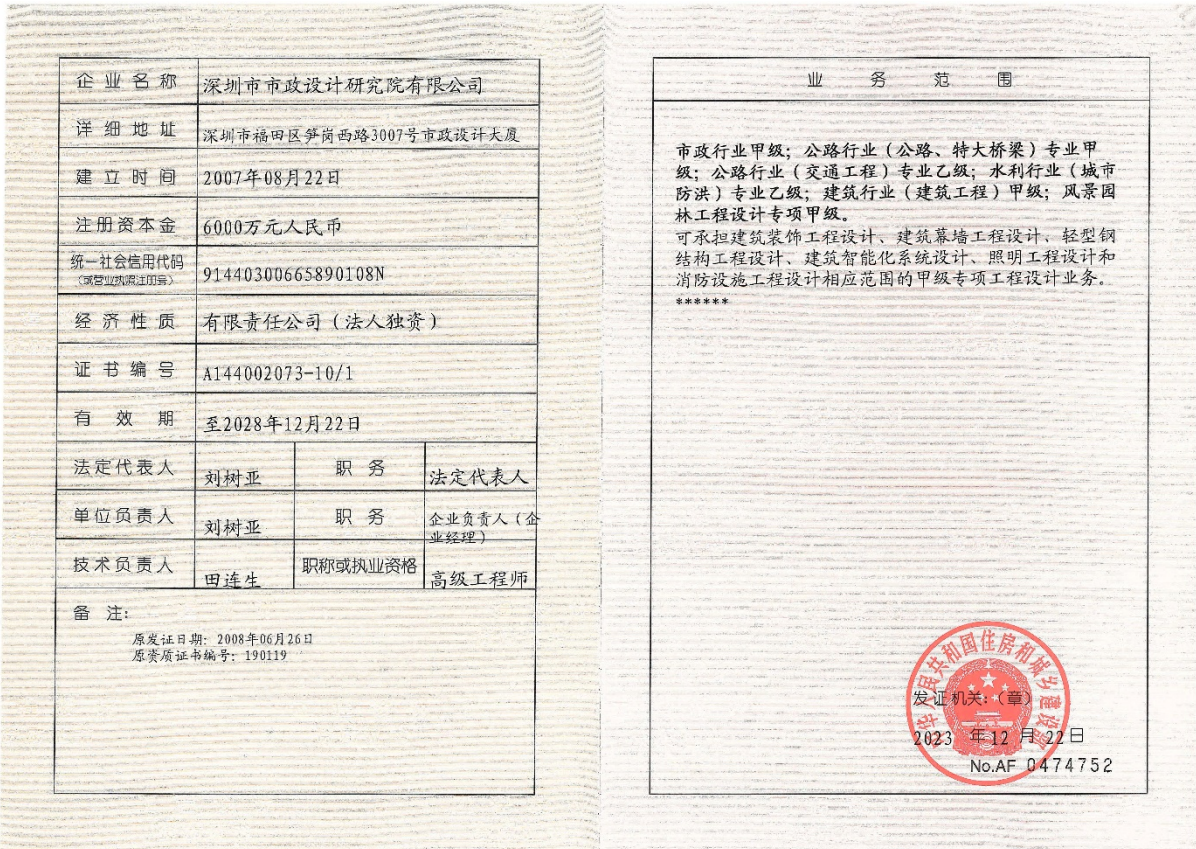 企业名称 深圳市市政设计研究院有限公司
详细地址 深圳市福田区笋岗西路3007号市政设计大厦
建立时间 2007年08月22日
注册资本金 6000万元人民币
统一社会信用代码
(或营业执照注册号) 91440300665890108N
经济性质 有限责任公司（法人独资）
证书编号 A144002073-10/1
有效期 至2028年12月22日
法定代表人 刘树亚 职务 法定代表人
单位负责人 刘树亚 职务 企业负责人（企
业经理）
技术负责人 田连生 职称或执业资格 高级工程师
备注：
原发证日期：2008年06月26日
原资质证书编号：190119
业务范围
市政行业甲级；公路行业（公路、特大桥梁）专业甲
级；公路行业（交通工程）专业乙级；水利行业（城市
防洪）专业乙级；建筑行业（建筑工程）甲级；风景园
林工程设计专项甲级。
可承担建筑装饰工程设计、建筑幕墙工程设计、轻型钢
结构工程设计、建筑智能化系统设计、照明工程设计和
消防设施工程设计相应范围的甲级专项工程设计业务。
******
中华人民共和国住房和城乡建设部
发证机关：（章）
2023 年 12 月 22 日
No.AF 0474752